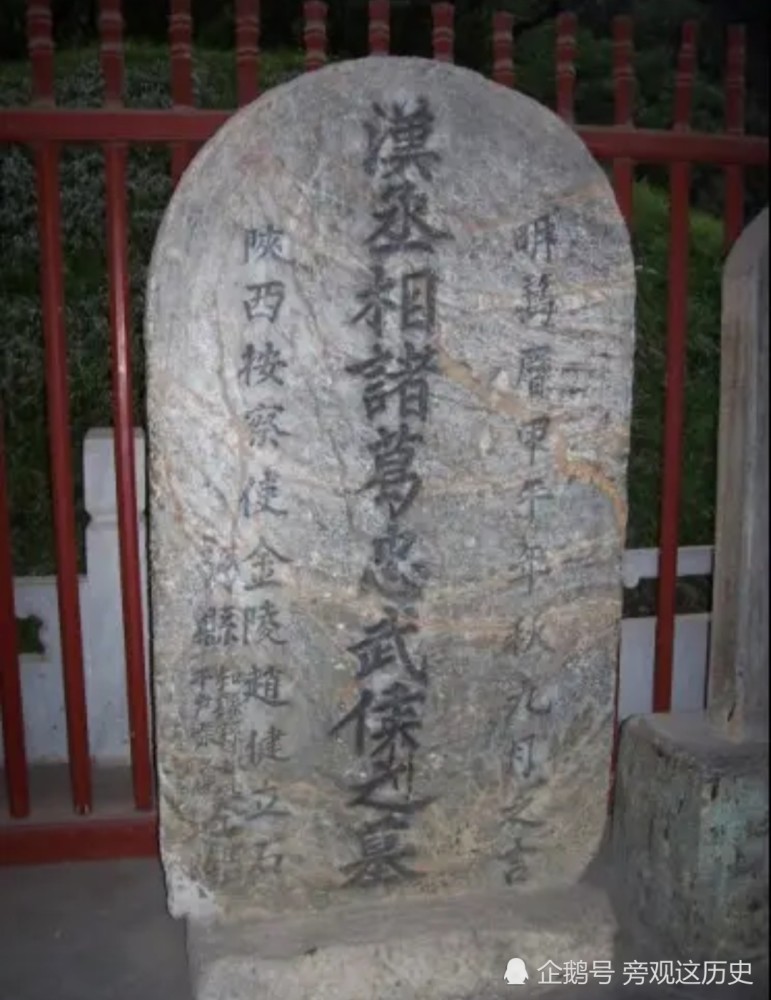 明萬曆甲午年秋九月之吉
漢丞相諸葛忠武侯之墓
陝西按察使金陵趙健立石
縣
企鹅号 旁观这历史